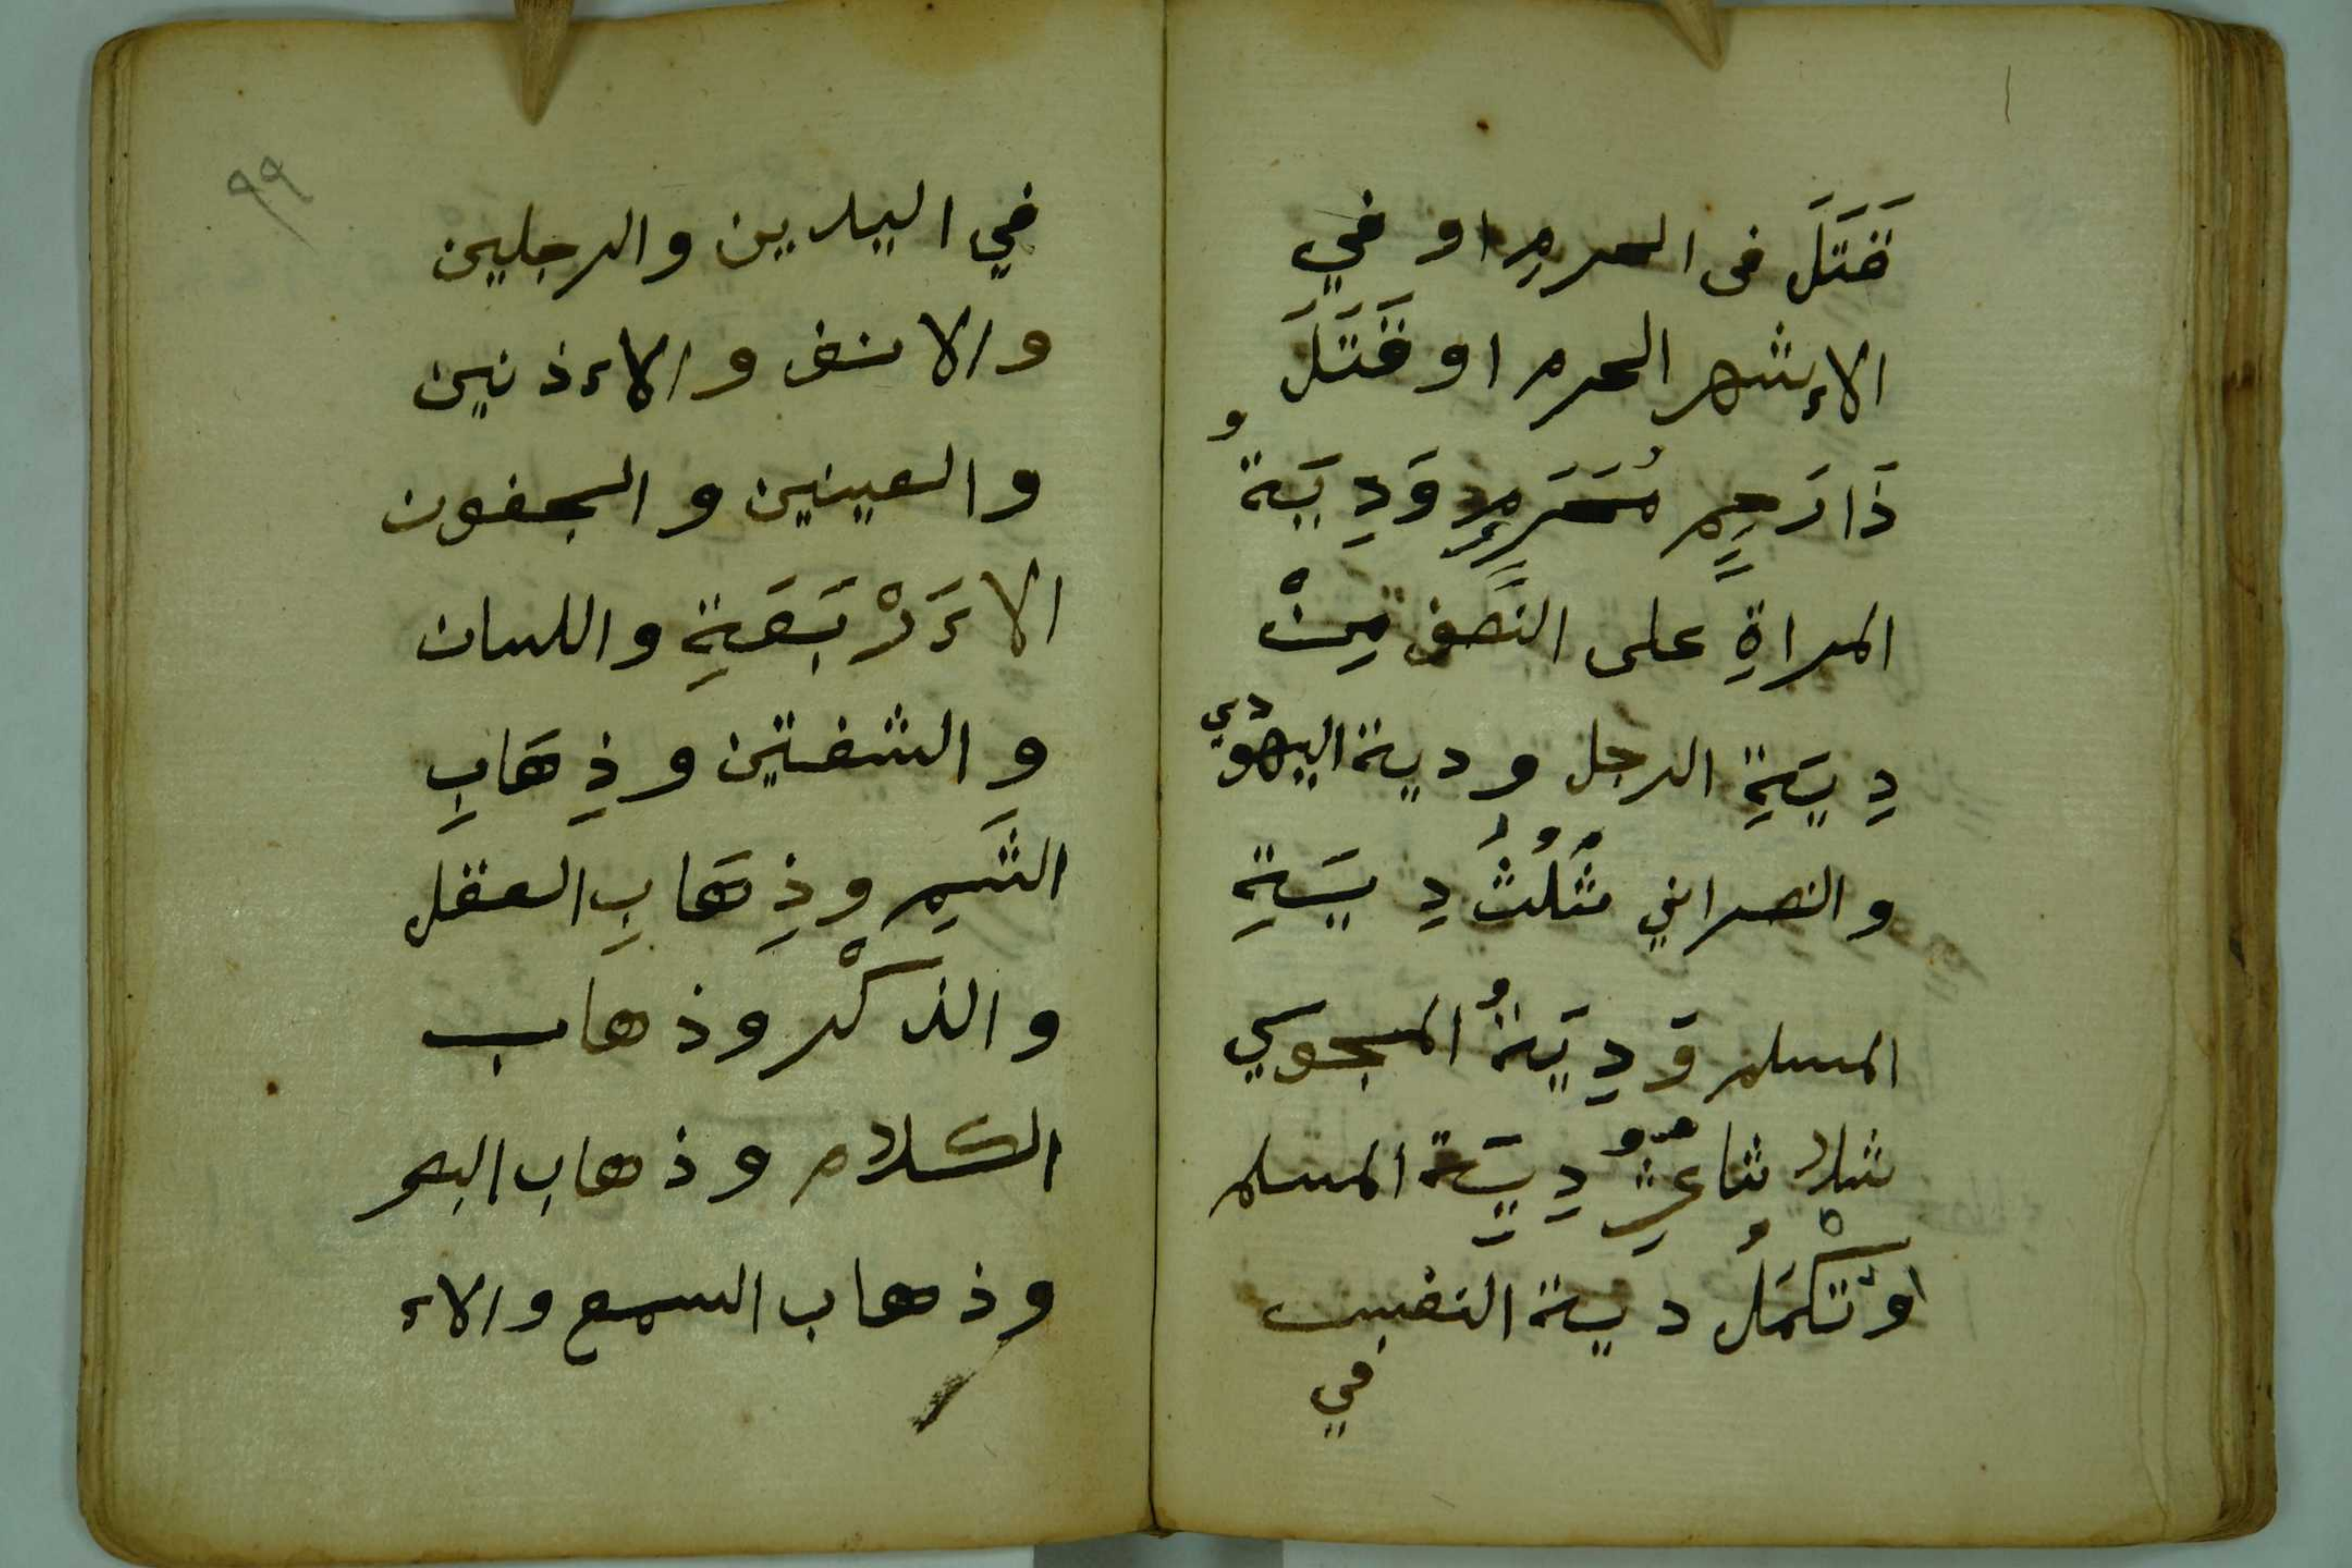 قَتَلَ فى الحرمِ او في
الاءشهر الحرم او قَتَلَ
ذَا رَحِمٍ مُحَرَمٍ وَدِيَةُ
المراةِ على النصف مِنْ
دِيَةِ الرجل ودية اليهودي
والنصراني ثُلُثُ دِيَةِ
المسلم وَدِيَةُ المجوسي
ثلاثا عشرُ دِيَةِ المسلم
وَتُكْمَلُ دية النفس
في
٩٩
في اليدين والرجلين
والانف والاءذنين
والعينين والجفون
الاءَرْبَعَةِ واللسان
والشفتين وذِهَابِ
الشَمِ وذِهَابِ العقل
والذكْر وذهاب
الكلام وذهاب البصر
وذهاب السمع والاء